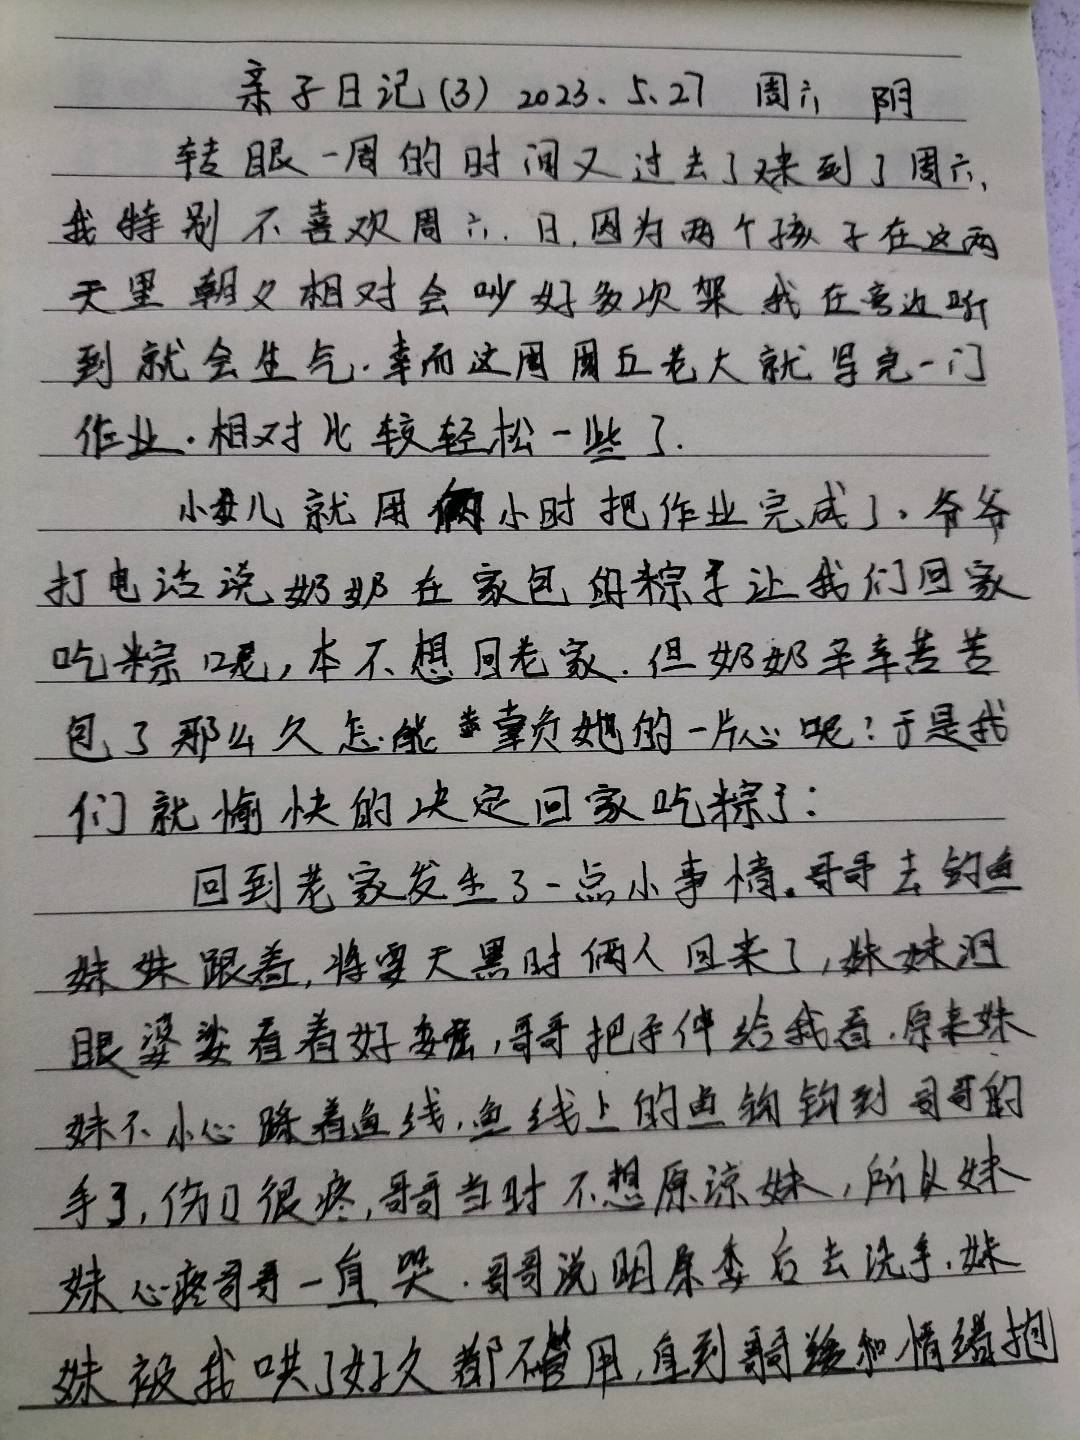 亲子日记(3) 2023.5.27 周六 阴
转眼一周的时间又过去了又来到了周六,
我特别不喜欢周六.日,因为两个孩子在这两
天里朝夕相对会吵好多次架我在旁边听
到就会生气.幸而这周周五老大就写完一门
作业.相对比较轻松一些了.
小女儿就用俩小时把作业完成了.爷爷
打电话说奶奶在家包的粽子让我们回家
吃粽呢,本不想回老家.但奶奶辛辛苦苦
包了那么久怎能辜负她的一片心呢?于是我
们就愉快的决定回家吃粽了:
回到老家发生了一点小事情。哥哥去钓鱼
妹妹跟着,将要天黑时俩人回来了,妹妹泪
眼婆娑看着好委屈,哥哥把手伸给我看.原来妹
妹不小心踩着鱼线,鱼线上的鱼钩钩到哥哥的
手了,伤口很疼,哥哥当时不想原谅妹,所以妹
妹心疼哥哥一直哭.哥哥说明原委后去洗手.妹
妹被我哄了好久都不管用,直到哥哥缓和情绪抱